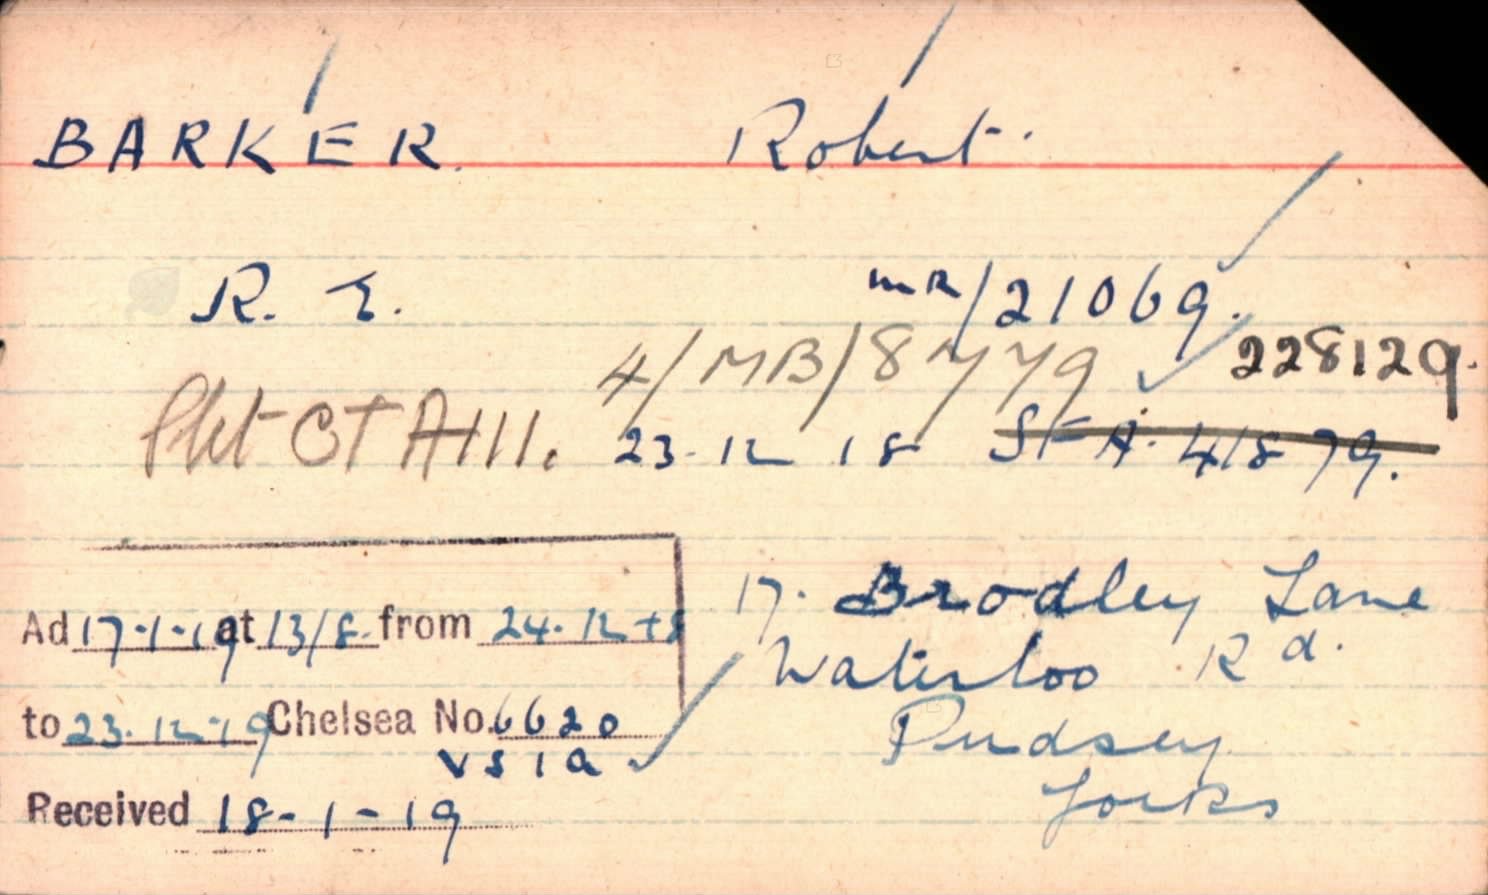 BARKER. Robert.
R. E. MR/21069.
4/MB/8779 228129.
Pkt CT A111. 23-12 18 SFA. 41879.
Ad 17-1-19 at 13/8. from 24.12 18
17. Brodley Lane
Waterloo Rd.
to 23.12-19 Chelsea No. 6620
Pudsey
VS1a
Received 18-1-19
Yorks